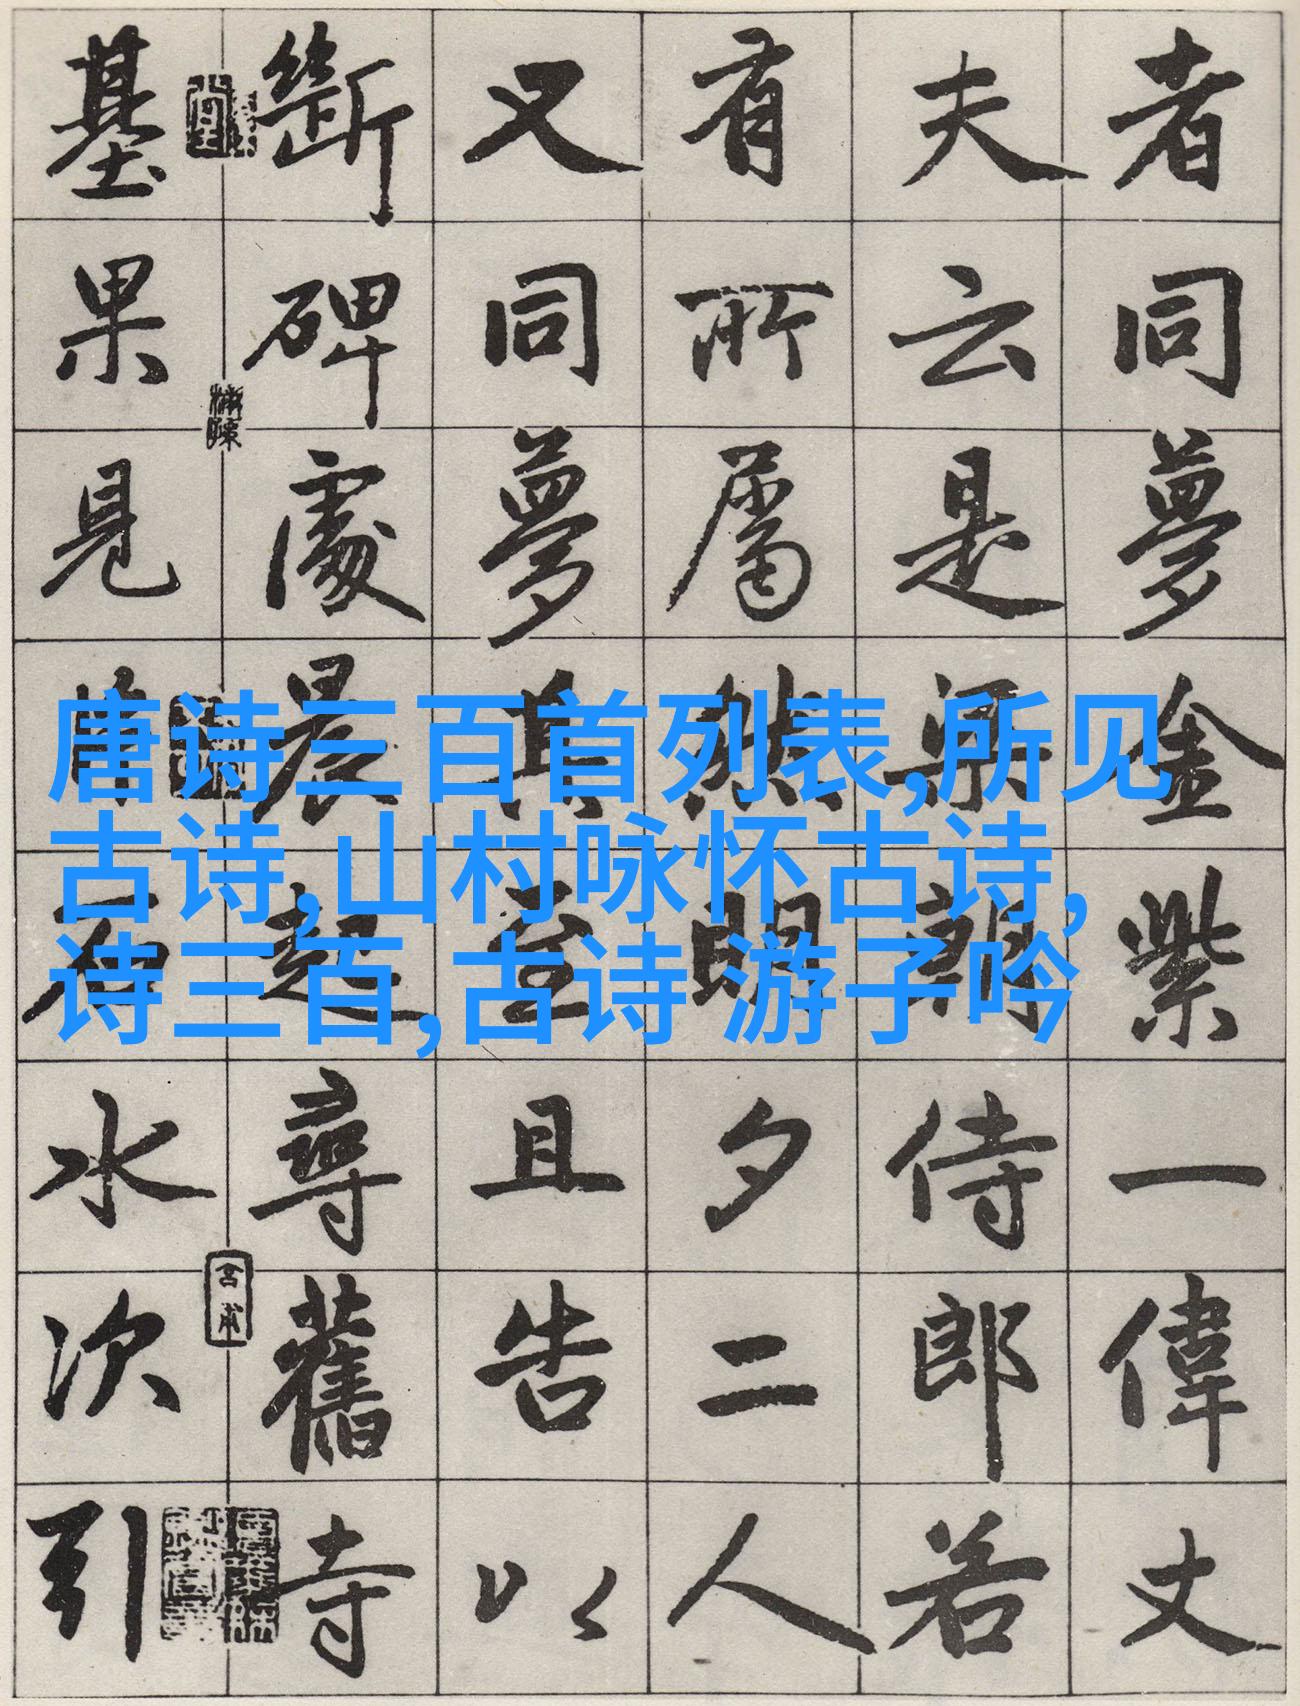 者同夢金紫一偉丈
夫云是梁朝侍郎若
有所屬然明夕二人
又同夢其言且告以
斷碑處晨起尋舊寺
基果見
石水次引
唐诗三百首列表,所见
古诗,山村咏怀古诗,
诗三百,古诗 游子吟